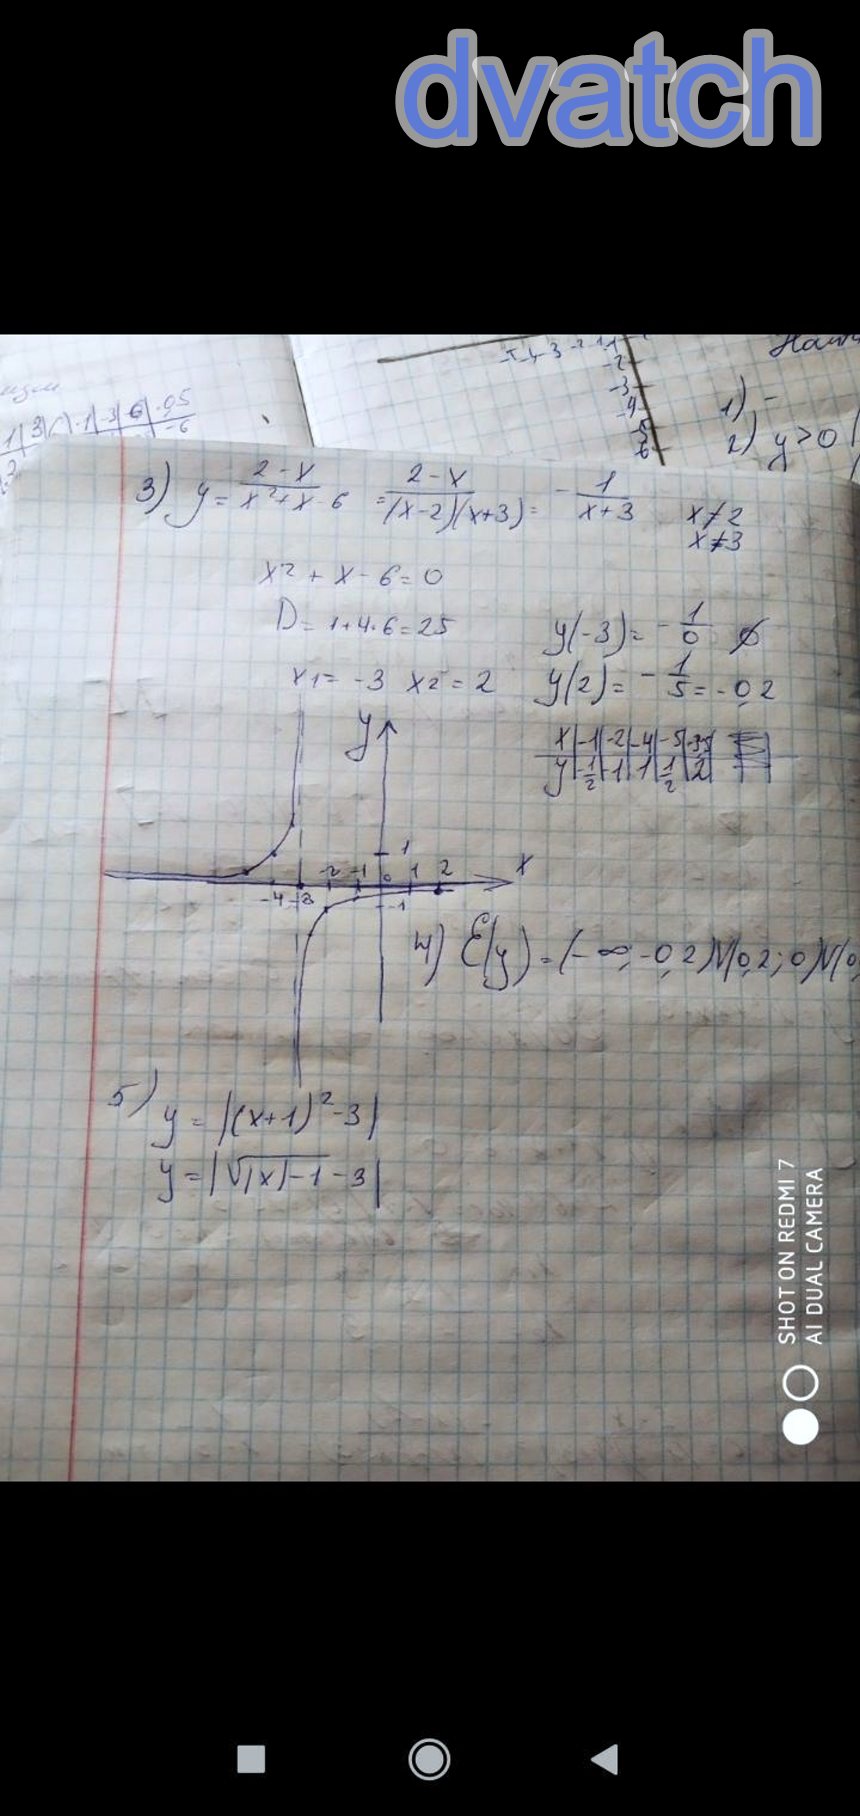 dvatch
-2
-3
-4
5
6
1) -
2) y>0
3) y= 2-x / x²+x-6 = 2-x / (x-2)(x+3) = - 1 / x+3 x≠2
x≠3
x²+x-6=0
D=1+4·6=25
y(-3)= - 1/0 ∅
x1= -3 x2=2
y(2)= - 1/5 = -0,2
x|-1|-2|-4|-5|-3,5|
y|-1/2|-1|1|1/2|2|
y
1
x
-2 -1 0 1 2
-4 -3 -1
4) E(y)=(-∞;-0,2)V(0,2;0)V(0
5) y=|(x+1)²-3|
y=|√|x|-1-3|
SHOT ON REDMI 7
AI DUAL CAMERA